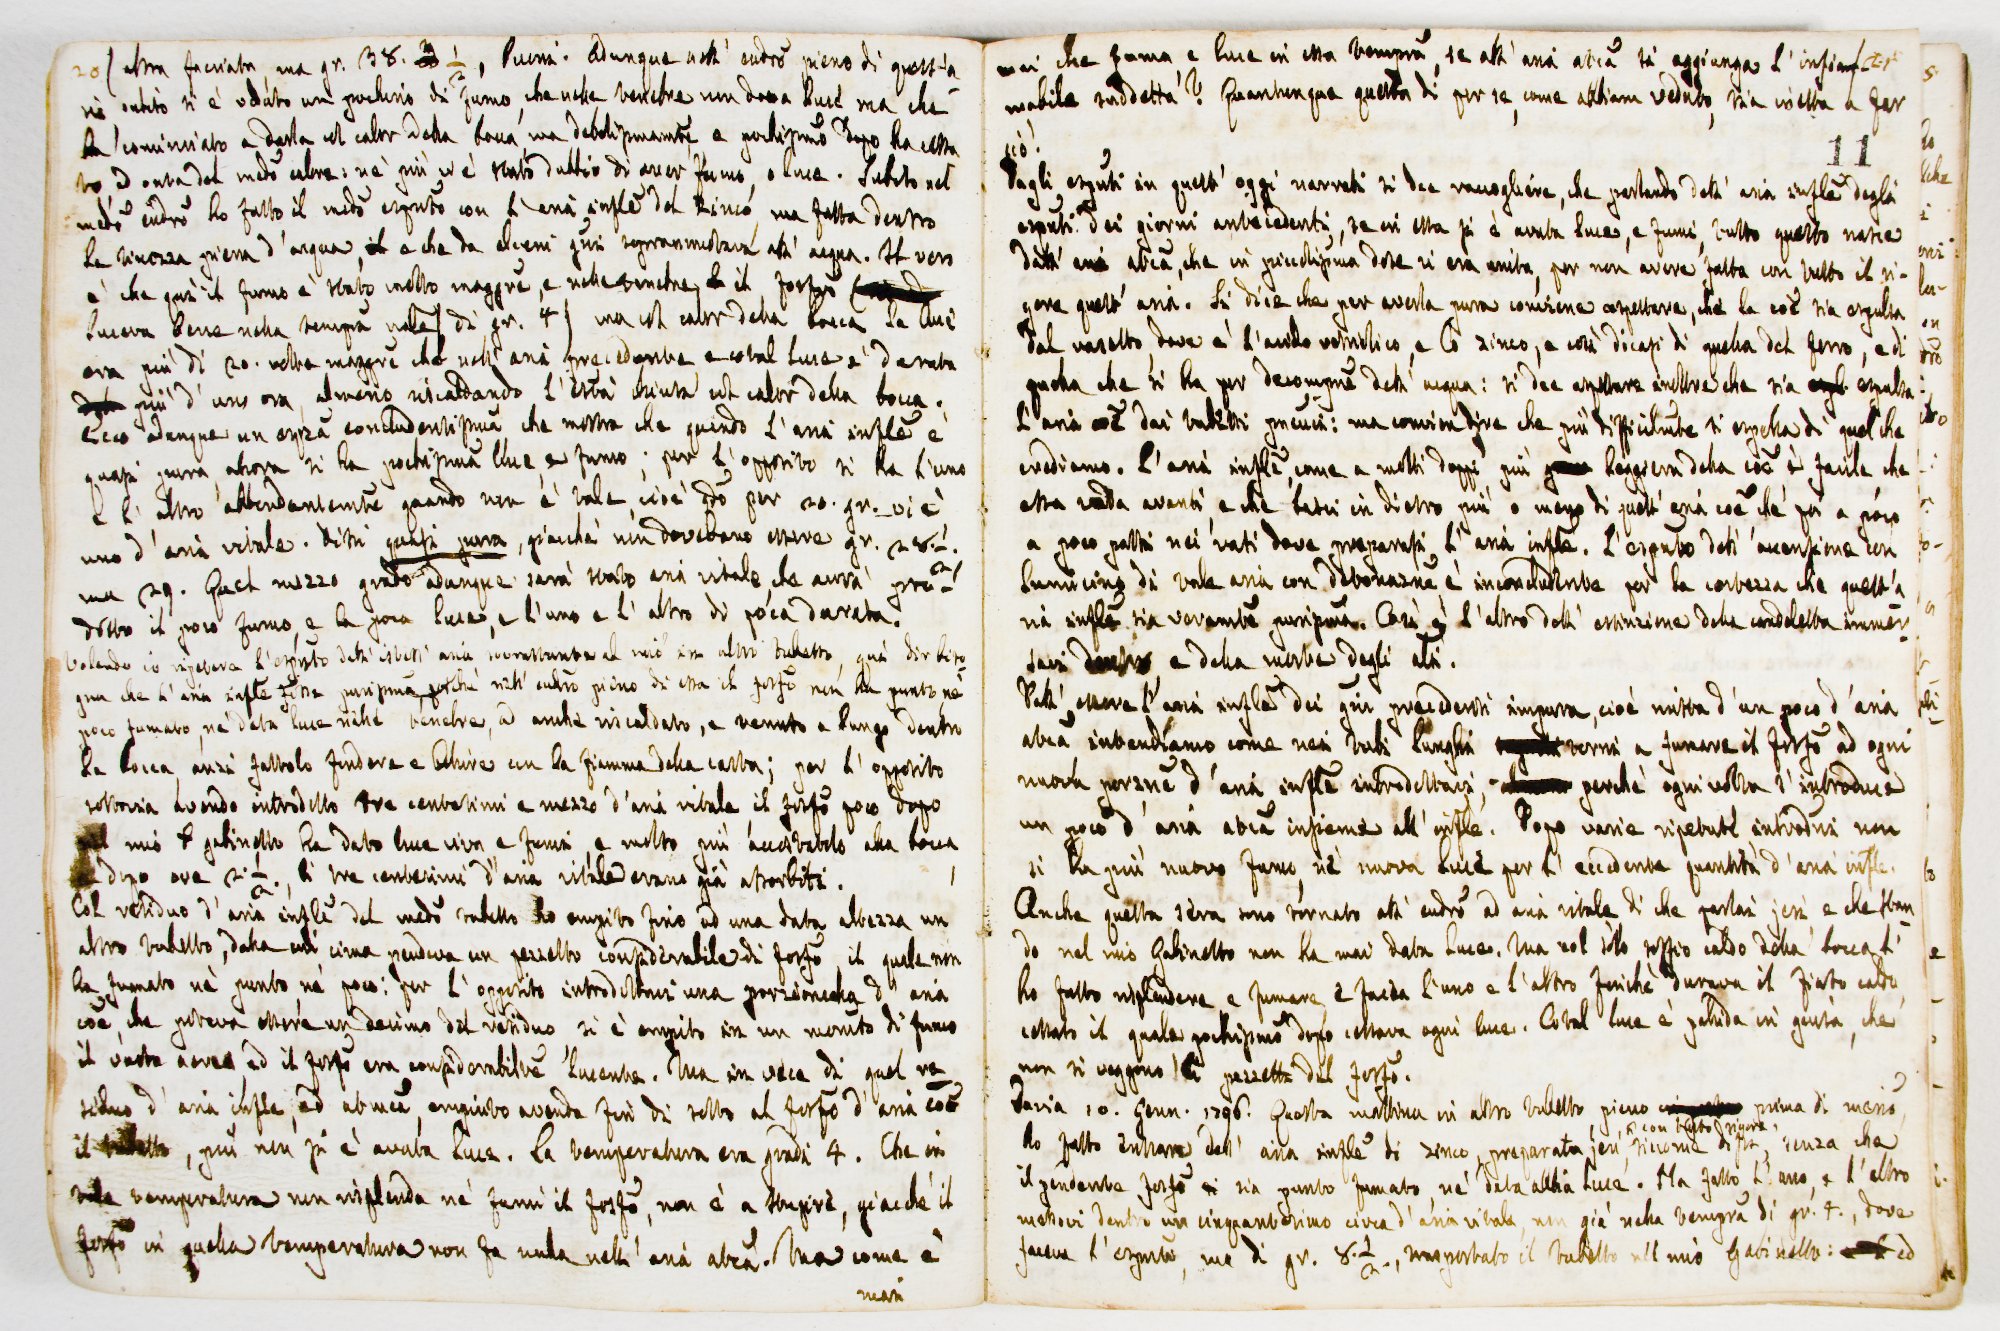 20 altra facciata, ma gr. 38. 1/2, Pavia. Adunque nell' eudrō pieno di quest'a
rië subito si è veduto un pochino di fumo, che nelle tenebre non dava luce ma che
ha cominciato a darla col calor della bocca, ma debolissimamtē e pochissimō dopo ha cessa
to ad onta del medō calore: nè più vi è stato dubbio di aver fumo, o luce. Subito nel
medō eudrō ho fatto il medō esputō con l'aria inflē del zinco, ma fatta dentro
la tinozza piena d'acqua, e che da alcuni gūi soprannuotava all' acqua. Il vero
è che quì il fumo è stato molto maggrē, e nelle tenebre il fosforo
luceva bene nella tempra notē di gr. 4 ma col calor della bocca la luce
era più di 20. volte maggrē che nell' aria precedente e cotal luce è durata
più d' un' ora, almeno riscaldando l'està chiusa col calor della bocca.
Ecco adunque un espzā concludentissimā che mostra che quando l'aria inflē è
quasi pura, allora si ha pochissimā luce e fumo; per l'opposito si ha l'uno
e l'altro abbondantemtē quando non è tale, cioè qdō per 20. gr. vi è
uno d'aria vitale. Dissi quasi pura, giacchè non dovebano essere gr. 28. 1/2.
ma 29. Quel mezzo grado adunque sarà stato aria vitale che avrà pro-
dotto il poco fumo, e la poca luce, e l'uno e l'altro di poca durata.
Volendo io ripetere l'esputō dell' istessa aria soprastante al mio in altro tubetto, quì dir biso
gna che l'aria inflē fosse purissimā perchè nell' eudrō pieno di essa il fosfō non ha punto nè
poco fumato, nè data luce nelle tenebre, ad anche riscaldato, e tenuto a lungo dentro
la bocca, anzi fattolo fondere e bollire con la fiamma della carta; per l'opposito
sottovia avendo introdotto tre centesimi e mezzo d'aria vitale il fosfō poco dopo
nel mio gabinetto ha dato luce viva e fumi, e molto più accostatolo alla bocca
e dopo ore 2. 1/2., li tre centesimi d'aria vitale erano già assorbiti.
Col residuo d'aria inflē del medō tubetto ho empito fino ad una data altezza un
altro tubetto, dalla cui cima pendeva un pezzetto considerabile di fosfō, il quale non
ha fumato nè punto nè poco: per l'opposito introdottavi una porzioncella d'aria
coē, che poteva essere un decimo del residuo, si è empito in un momento di fumo
il vaso aereo ed il fosfō era considerabiltē lucente. Ma in vece di quel re
siduo d'aria inflē, ed atmcā, empiuto avendo fin di sotto al fosfō d'aria coē
il tubetto, più non si è avuta luce. La temperatura era gradi 4. Che in
tale temperatura non risplenda nè fumi il fosfō, non è a stupire, giacchè il
fosfō in quella temperatura non fa nulla nell' aria atcā. Ma come è
mai
mai che fuma e luce in essa temprā, se all' aria atcā si aggiunga l'infiam-
mabile suddetta? Quantunque questa di per se, come abbiam veduto, sia inetta a far
ciò!
11
Dagli esputi in quest' oggi narrati si dee raccogliere, che parlando dell' aria inflē degli
esputi dei giorni antecedenti, se in essa si è avuta luce, e fumi, tutto questo nasce
dall' aria atcā, che in piccolissima dose vi era unita, per non avere fatta con tutto il ri-
gore quest' aria. Si dice che per averla pura conviene aspettare, che la coē sia espulsa
dal vasetto, dove è l'acido vetriolico, e lo zinco, e così dicasi di quella del ferro, e di
quella che si ha per decompnē dell' acqua: si dee aspettare inoltre che sia espulsa
l'aria coē dai tubetti pneuci: ma convien dire che più difficiltē si espella di quel che
crediamo. L'aria inflē, come a molti doppi più leggiera della coē è facile che
essa vada avanti, e che lasci in dietro più o meno di quest' aria coē che poi a poco
a poco passi nei vasi dove preparasi l'aria inflē. L'esputo dell' accensione con
lumicino di tale aria con detonaznē è inconcludente per la certezza che quest' a
ria inflē sia veramtē purissmā. Così è l'altro dell' estinzione della candeletta immer-
savi dentro e della morte degli ali.
Dall' essere l'aria inflē dei gūi precedenti impura, cioè mista d'un poco d'aria
atcā intendiamo come nei tubi lunghi torni a fumare il fosfō ad ogni
nuova porznē d'aria inflē introdottaci, perchè ogni volta s'introduce
un poco d'aria atcā insieme all' inflē. Dopo varie ripetutē introduzi non
si ha più nuovo fumo, nè nuova luce per l'eccedente quantità d'aria inflē.
Anche questa sera sono tornato all' eudrō ad aria vitale di che parlai jeri e che stan
do nel mio Gabinetto non ha mai data luce. Ma col solo soffio caldo della bocca l'
ho fatto risplendere, e fumare, e facea l'uno e l'altro finchè durava il fiato caldo,
cessato il quale pochissimō dopo cessava ogni luce. Cotal luce è pallida in guisa, che
non si veggono li pezzetti del fosfō.
Pavia 10. Genn. 1796. Questa mattina in altro tubetto, pieno prima di mercō,
ho fatto entrare dell' aria inflē di zinco, preparata jeri, siccome dissi, con tutto rigore, senza che
il pendente fosfō sia punto fumato, nè data abbia luce. Ha fatto l'uno, e l'altro
messovi dentro un cinquantesimo circa d'aria vitale, non già nella temprā di gr. 4., dove
faceva l'esputo, ma di gr. 8. 1/2., trasportato il tubetto nel mio Gabinetto: ed